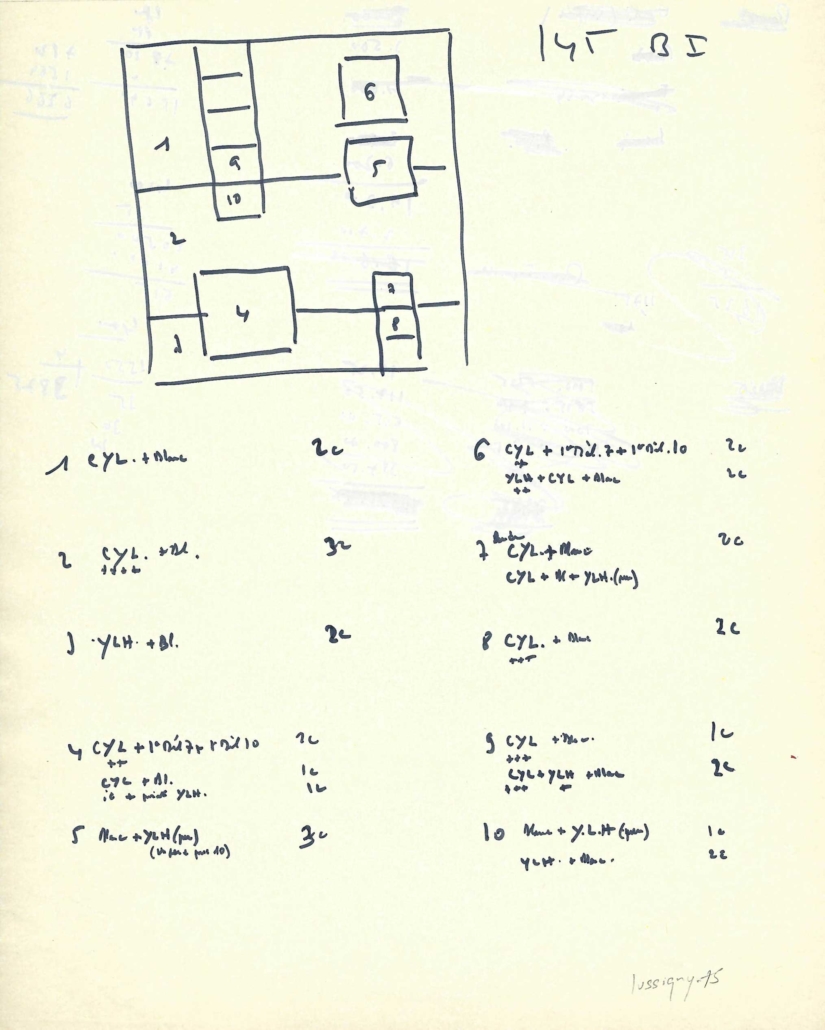 14T B I
6
1
9
5
10
2
7
4
8
3
1 CYL. + Blanc 2c
2 CYL. + Bl. 3c
++++
3 YLH. + Bl. 2c
4 CYL + 1° Dil 7 + 1° Dil 10 2c
++
CYL + Bl. 1c
id + YLH. 1c
5 Blanc + YLH (peu) 3c
6 CYL + 1° Dil. 7 + 1° Dil. 10 2c
++
YLH + CYL + Blanc 2c
++
7 CYL. + Blanc 2c
CYL + Bl + YLH. (peu)
8 CYL. + Blanc 2c
+++
9 CYL + Blanc. 1c
+++
CYL + YLH + Blanc 2c
+++ +
10 Blanc + Y.L.H (peu) 1c
YLH. + Blanc. 2c
lussigny-15